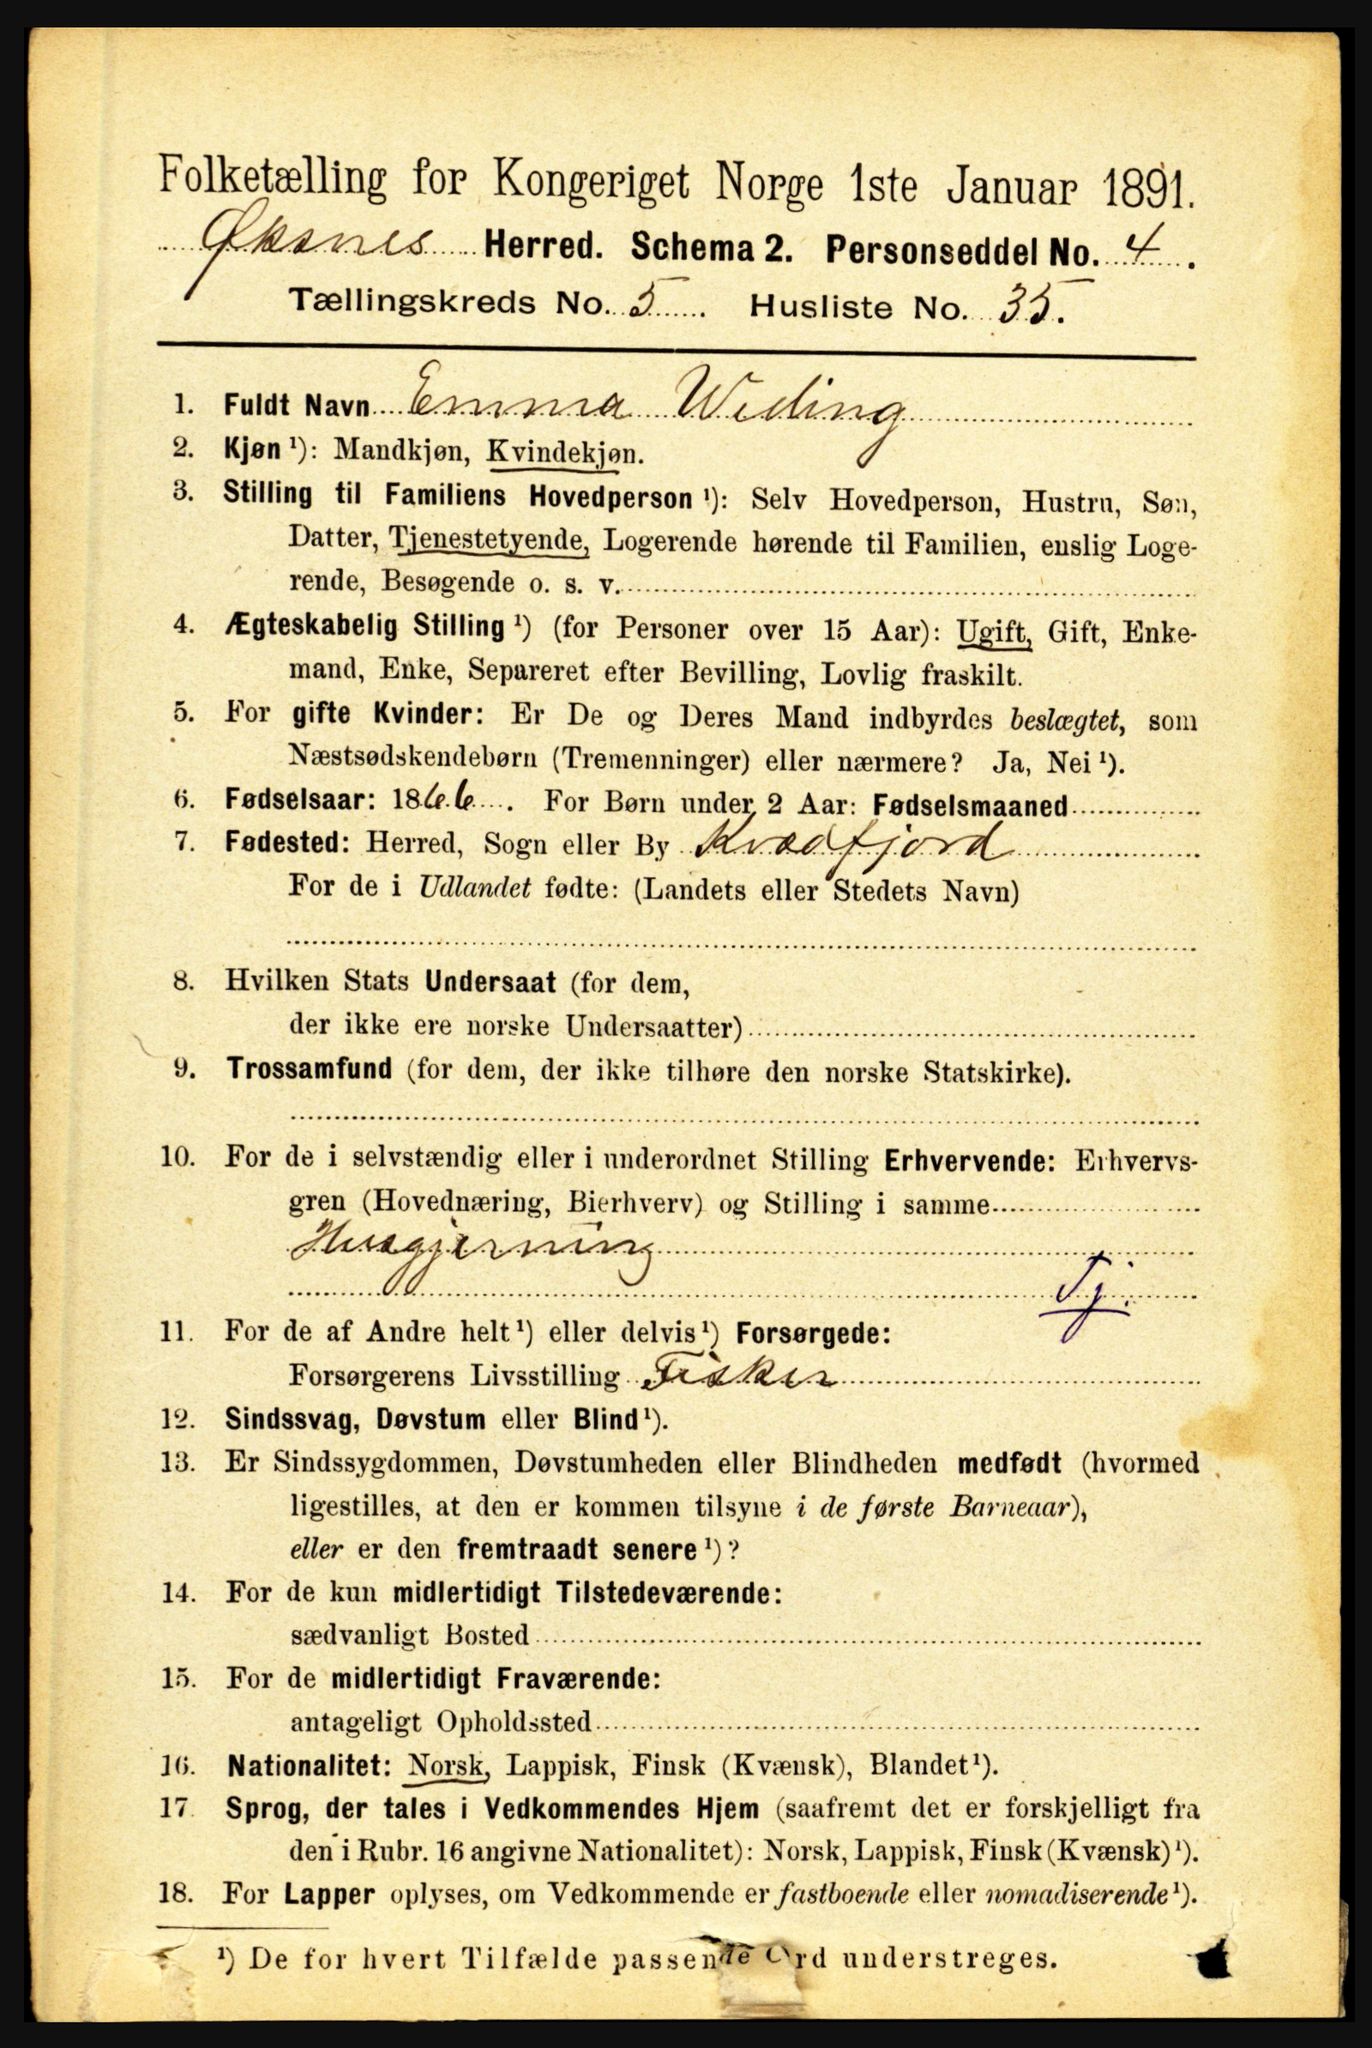 Folketælling for Kongeriget Norge 1ste Januar 1891.
Øksnes Herred. Schema 2. Personseddel No. 4.
Tællingskreds No. 5. Husliste No. 35.
1. Fuldt Navn Emma Weding
2. Kjøn ¹): Mandkjøn, Kvindekjøn.
3. Stilling til Familiens Hovedperson ¹): Selv Hovedperson, Hustru, Søn,
Datter, Tjenestetyende, Logerende hørende til Familien, enslig Loge-
rende, Besøgende o. s. v.
4. Ægteskabelig Stilling ¹) (for Personer over 15 Aar): Ugift, Gift, Enke-
mand, Enke, Separeret efter Bevilling, Lovlig fraskilt.
5. For gifte Kvinder: Er De og Deres Mand indbyrdes beslægtet, som
Næstsødskendebørn (Tremenninger) eller nærmere? Ja, Nei ¹).
6. Fødselsaar: 1866. For Børn under 2 Aar: Fødselsmaaned
7. Fødested: Herred, Sogn eller By Kvædfjord
For de i Udlandet fødte: (Landets eller Stedets Navn)
8. Hvilken Stats Undersaat (for dem,
der ikke ere norske Undersaatter)
9. Trossamfund (for dem, der ikke tilhøre den norske Statskirke).
10. For de i selvstændig eller i underordnet Stilling Erhvervende: Erhvervs-
gren (Hovednæring, Bierhverv) og Stilling i samme
Husgjerning
Tj.
11. For de af Andre helt ¹) eller delvis ¹) Forsørgede:
Forsørgerens Livsstilling Fisker
12. Sindssvag, Døvstum eller Blind ¹).
13. Er Sindssygdommen, Døvstumheden eller Blindheden medfødt (hvormed
ligestilles, at den er kommen tilsyne i de første Barneaar),
eller er den fremtraadt senere ¹)?
14. For de kun midlertidigt Tilstedeværende:
sædvanligt Bosted
15. For de midlertidigt Fraværende:
antageligt Opholdssted
16. Nationalitet: Norsk, Lappisk, Finsk (Kvænsk), Blandet ¹).
17. Sprog, der tales i Vedkommendes Hjem (saafremt det er forskjelligt fra
den i Rubr. 16 angivne Nationalitet): Norsk, Lappisk, Finsk (Kvænsk) ¹).
18. For Lapper oplyses, om Vedkommende er fastboende eller nomadiserende ¹).
¹) De for hvert Tilfælde passende Ord understreges.